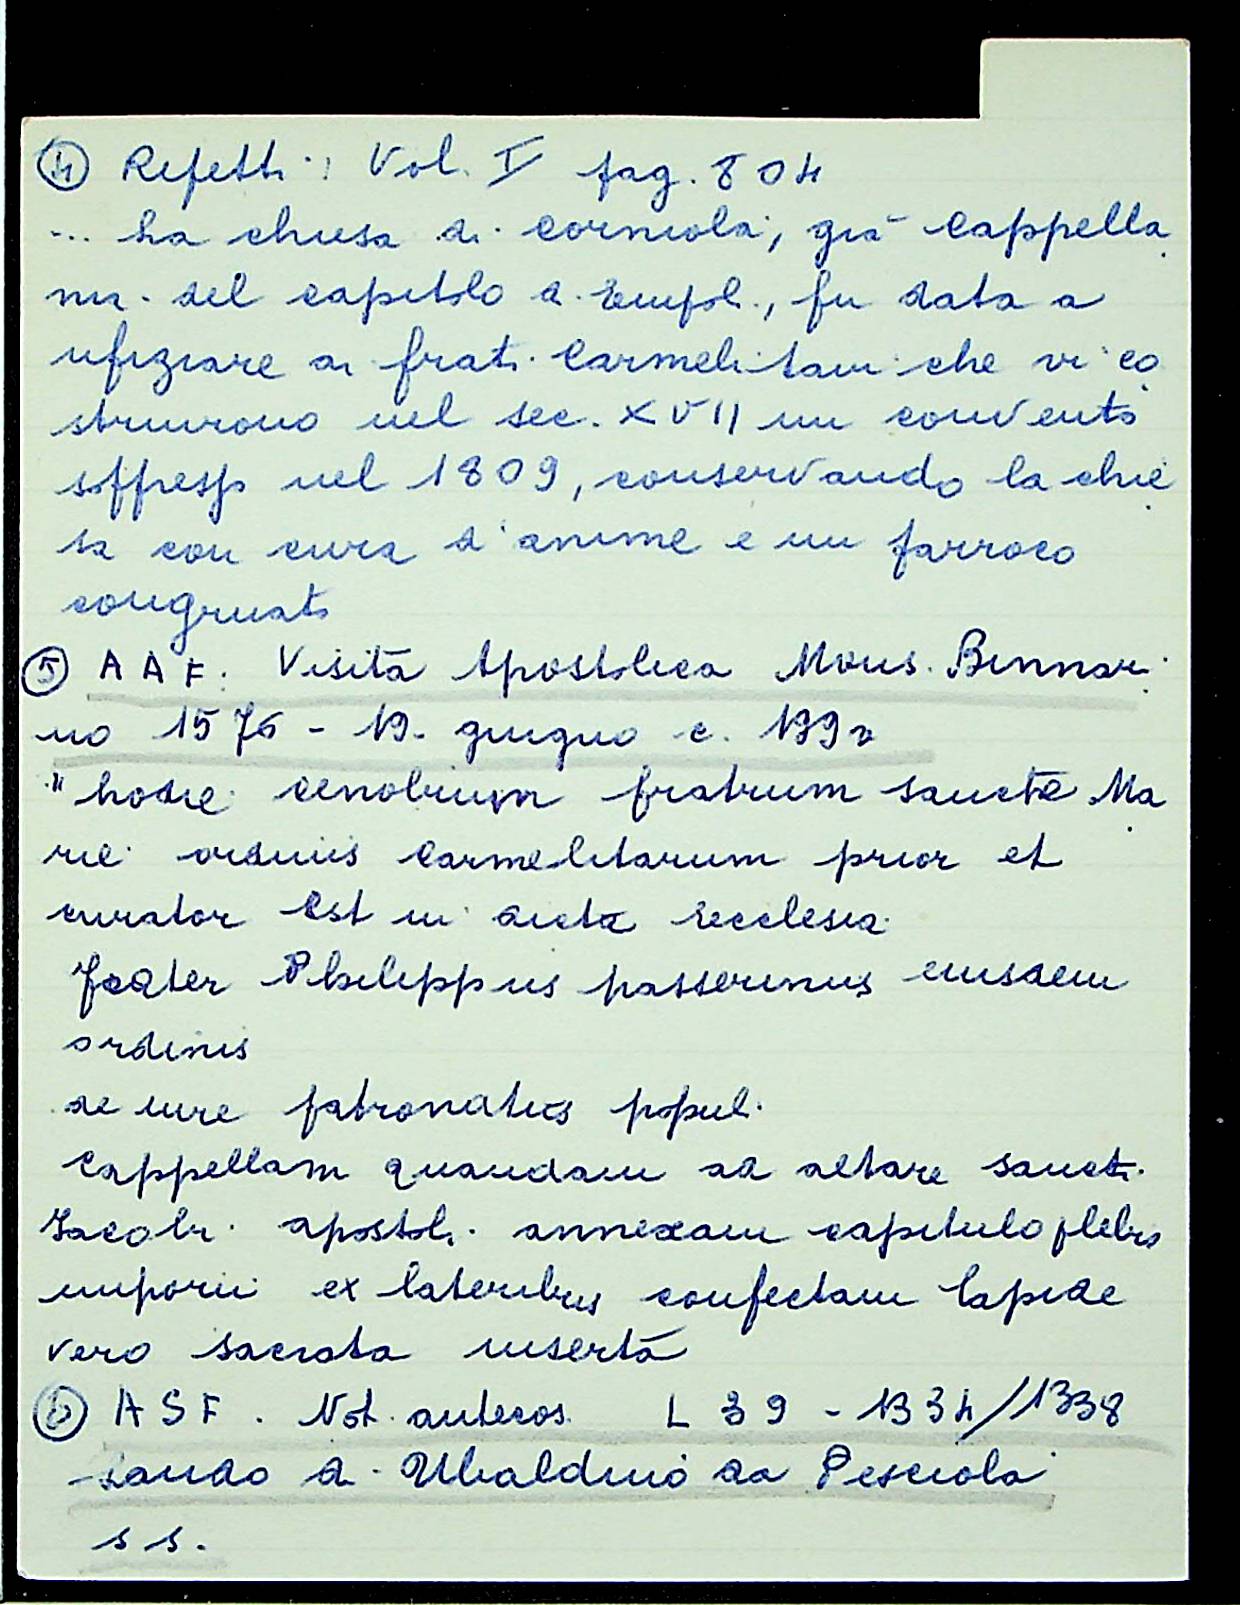 ④ Repetti: Vol. I pag. 804
... La chiesa di Corniola, già cappella
nia del capitolo di Empoli, fu data a
ufiziare ai frati Carmelitani che vi co
struirono nel sec. XVII un convento
soppresso nel 1809, conservando la chie
sa con cura d'anime e un parroco
congruato
⑤ AAF. Visita Apostolica Mons. Binnari
no 1576 - 19. giugno c. 139v
"hodie cenobium fratrum sancte Ma
rie ordinis Carmelitarum prior et
curator est in dicta ecclesia
frater Philippus passerinus eiusdem
ordinis
de iure patronatus populi
Cappellam quandam ad altare sancti
Jacobi apostoli annexam capitulo plebis
imporii ex lateribus confectam lapide
vero sacrata inserta
⑥ ASF. Not. antecos. L 39 - 1334/1338
Lando di Ubaldino da Pesciola
ss.